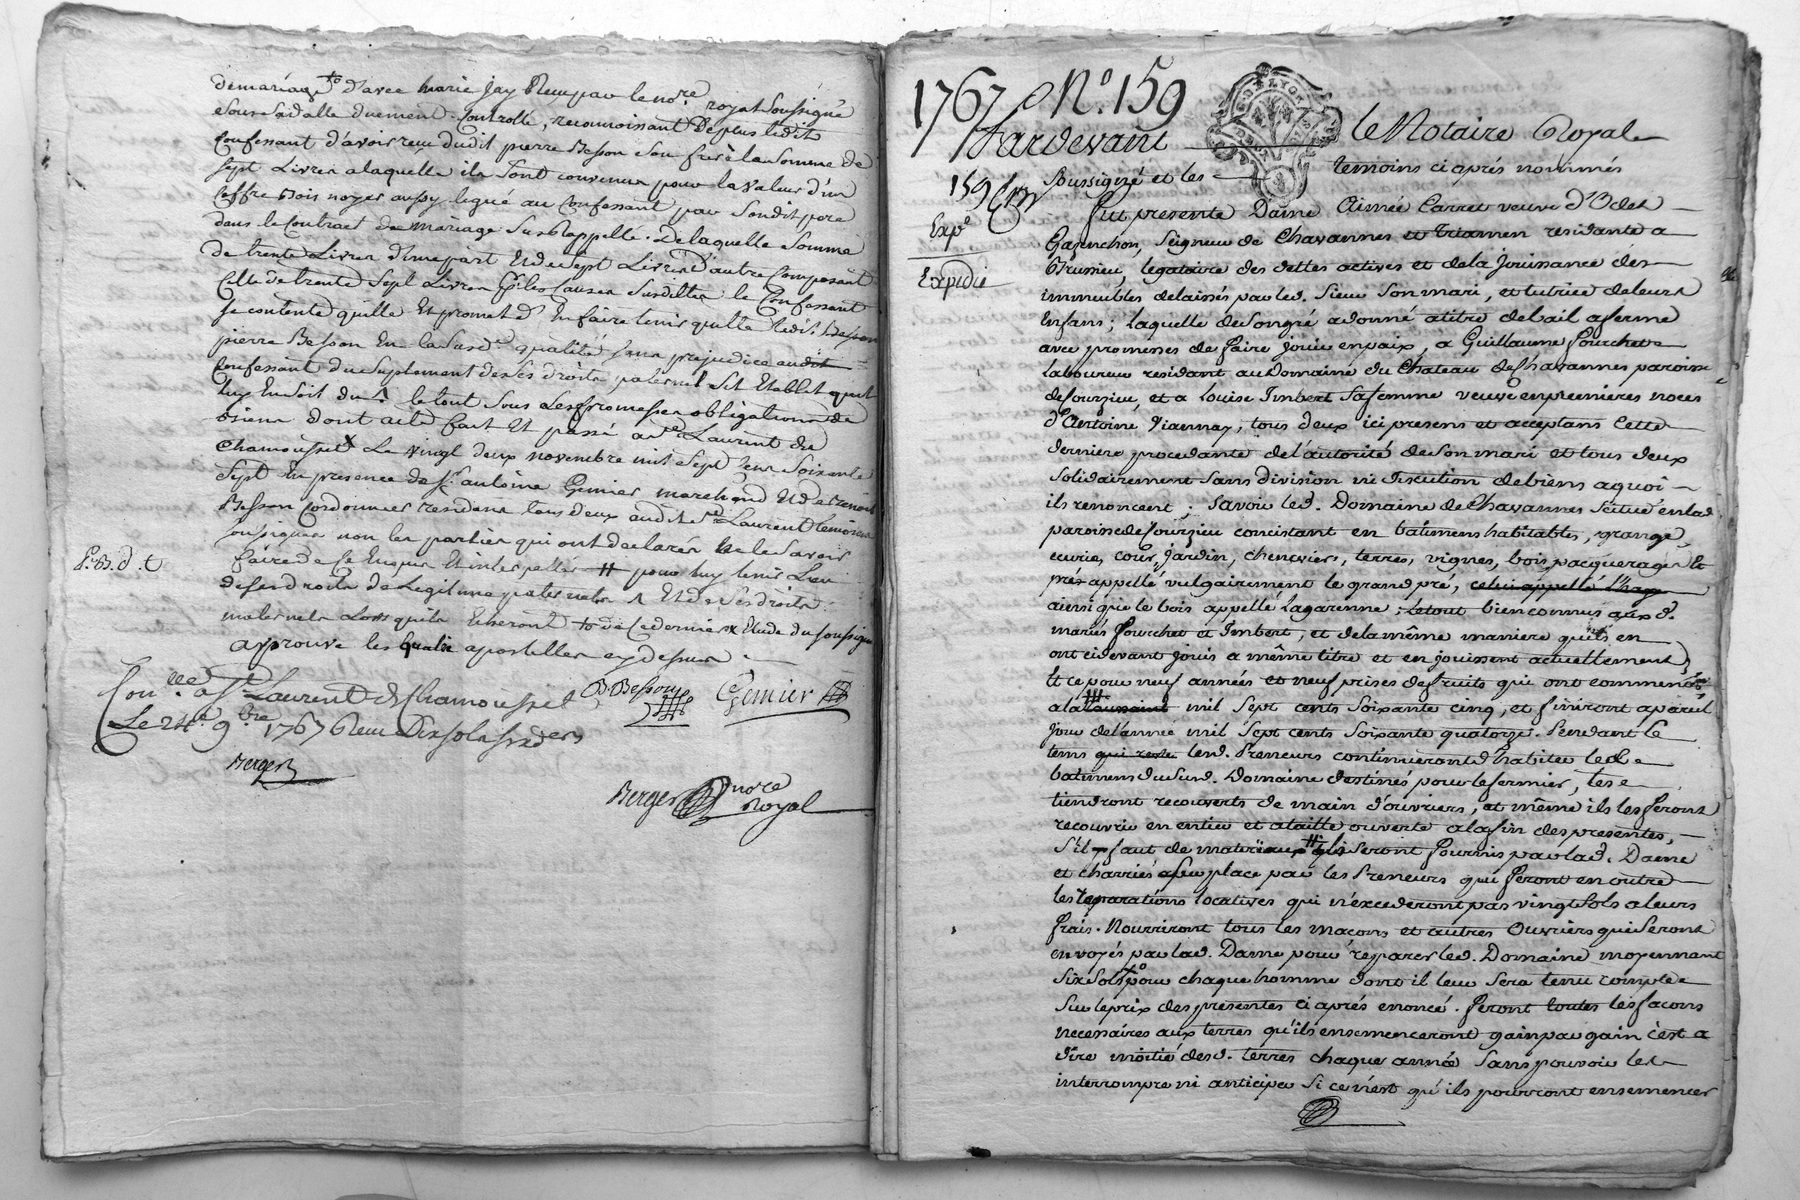 de mariage to d'avec marie jay Reçu par le nore royal soussigné
Confessant d'avoir reçu dudit pierre Besson son frere la somme de
sept Livres a laquelle ils sont convenus pour la valeur d'un
Coffre bois noyer aussy legué au Confessant par sondit pere
dans le Contract de mariage susrappellé. De laquelle somme
de trente Livres d'une part Et de sept Livres d'autre Composant
Celle de trente sept Livres Causes susdittes le Confessant
se contente quitte Et promet d'En faire tenir quitte ledit Besson
pierre Besson En la susde qualité sans prejudice audit
Confessant du suplement de ses droits paternels
le tout sous Les promesses obligations de
dont acte fait Et passé a St Laurent de
Chamousset Le vingt deux novembre mil sept cens soixante
sept En presence de sr antoine Grenier marchand Et de
Besson Cordonnier residens tous deux audit St Laurent temoins
soussignes non les parties qui ont declarés ne le savoir
faire de ce Enquis Et interpelles # pour luy tenir Lieu
de ses droits de Legitime paternels Et de ses droits
maternels Lors qu'ils Echeront to de ce dernier x Etude du soussigné
approuvé les quatre apostilles cy dessus
P. B. d. t
Conlé a St Laurent de Chamousset
Le 24e 9bre 1767 Reçu Dix sols six ders
B Besson
Grenier
Berger
Berger nore
Royal
1767 No. 159
Pardevant le Notaire Royal
soussigné et les temoins ci aprés nommés
159
Expé
Expedié
Fut presente Dame Aimée Carret veuve d'Odet
Gaponchon, Seigneur de Chavannes et Triamen residante a
Brussieu, legataire des dettes actives et de la jouissance des
immeubles delaissés par led. Sieur Son mari, et tutrice de leurs
Enfans; laquelle de son gré a donné a titre de bail a ferme
avec promesses de faire jouir en paix, a Guillaume Fourchet
laboureur residant au Domaine du Château de Chavannes paroisse
de Sourzieu, et a Louise Imbert Sa femme veuve en premieres noces
d'Antoine Viannay, tous deux ici presens et acceptans Cette
derniere procedante de l'autorité de son mari et tous deux
solidairement sans division ni discution de biens a quoi
ils renoncent; savoir led. Domaine de Chavannes Scitué en lad.
paroisse de Sourzieu concistant en bâtimens habitables, grange,
ecurie, cour, jardin, cheneviers, terres, vignes, bois, pacquerages et
prés appellé vulgairement le grand pré, celui appellé
ainsi que le bois appellé la garenne; le tout bien connus aux d.
mariés Fourchet et Imbert, et de la même maniere qu'ils en
ont cidevant joüis a même titre et en jouissent actuellement,
et ce pour neuf années et neuf prises de fruits qui ont commencé
a la toussaint mil Sept cents Soixante cinq, et finiront a pareil
jour de l'année mil Sept cents Soixante quatorze. Pendant le
tems qui reste lesd. Preneurs continueront d'habiter les
bâtimens du susd. Domaine destinés pour le fermier, les
tiendront recouverts de main d'ouvriers, et même ils les feront
recouvrir en entier et a taille ouverte a la fin des presentes,
S'il faut de materiaux ils seront fournis par lad. Dame
et charriés a leur place par les Preneurs qui feront en outre
les reparations locatives qui n'excederont pas vingt Sols a leurs
frais. Nourriront tous les macons et autres Ouvriers qui Seront
envoyés par lad. Dame pour reparer led. Domaine moyennant
Six Sols pour chaque homme dont il leur Sera tenu compte
Sur le prix des presentes ci aprés enoncé. Feront toutes les facons
necessaires aux terres qu'ils ensemenceront gain par gain c'est a
dire moitié desd. terres chaque année Sans pouvoir les
interrompre ni anticiper Si ce n'est qu'ils pourront ensemencer